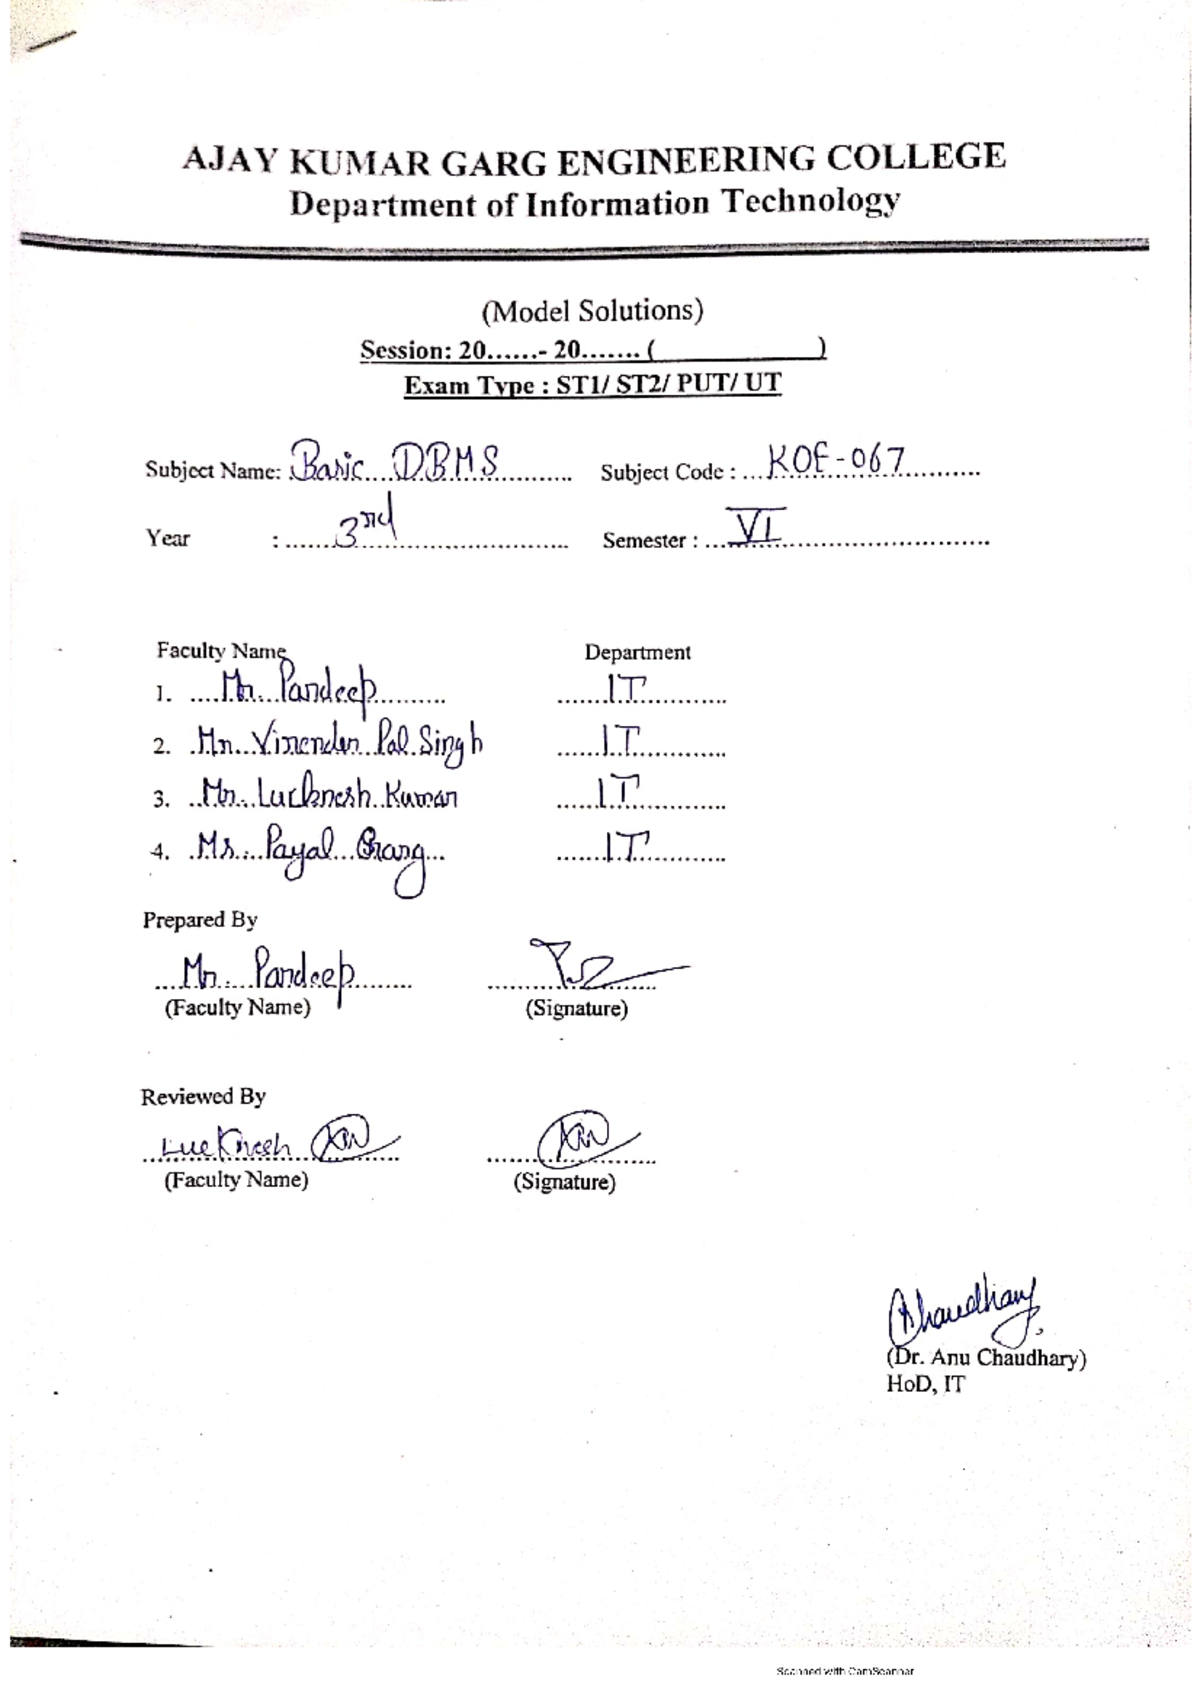 AJAY KUMAR GARG ENGINEERING COLLEGE
Department of Information Technology
(Model Solutions)
Session: 20......- 20....... (____________)
Exam Type : ST1/ ST2/ PUT/ UT
Subject Name: Basic DBMS Subject Code : KOE-067
Year : 3rd Semester : VI
Faculty Name Department
1. Mr. Pardeep IT
2. Mr. Virender Pal Singh IT
3. Mr. Lucknesh Kumar IT
4. Ms. Payal Garg IT
Prepared By
Mr. Pardeep
(Faculty Name) (Signature)
Reviewed By
Lucknesh
(Faculty Name) (Signature)
AChaudhary
(Dr. Anu Chaudhary)
HoD, IT
Scanned with CamScanner